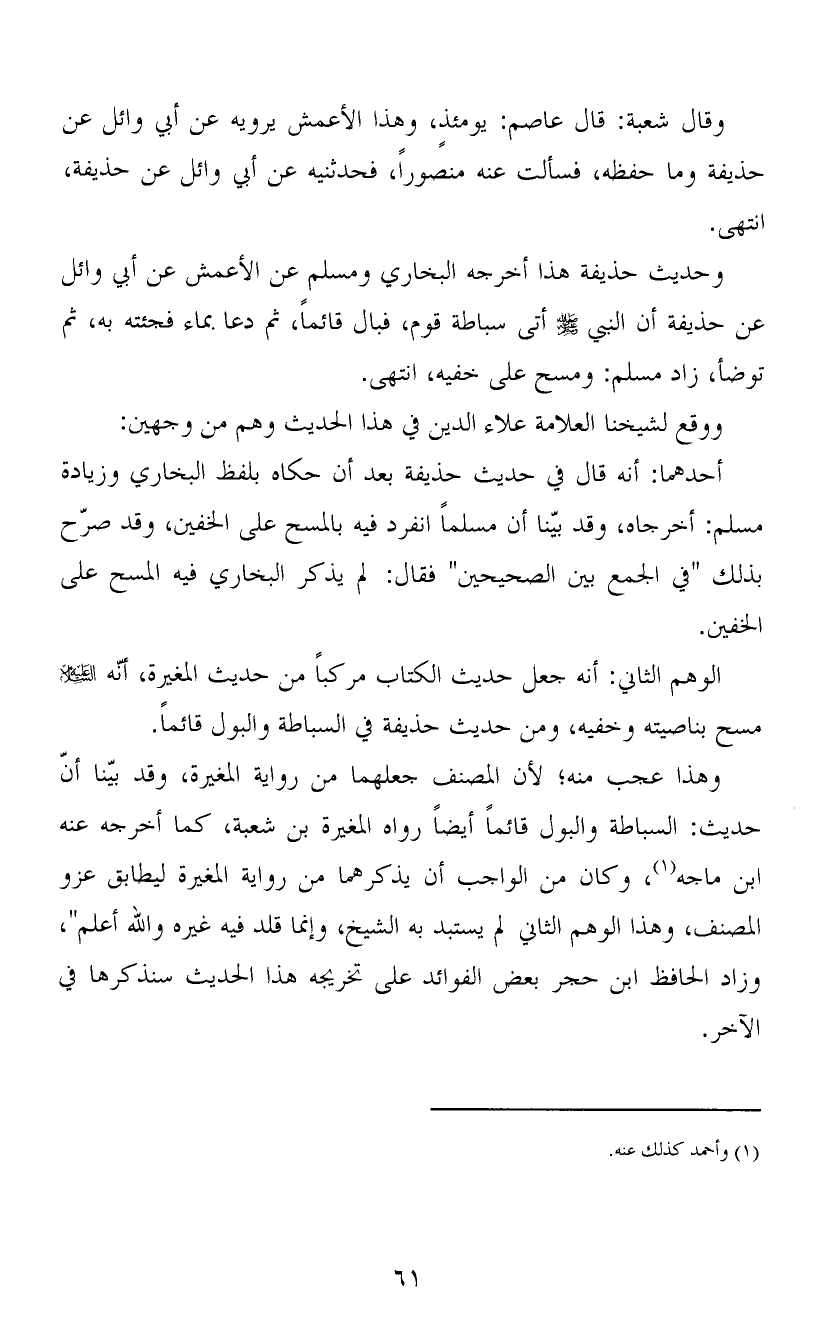 وقال شعبة: قال عاصم: يومئذٍ، وهذا الأعمش يرويه عن أبي وائل عن
حذيفة وما حفظه، فسألت عنه منصوراً، فحدثنيه عن أبي وائل عن حذيفة،
انتهى.
وحديث حذيفة هذا أخرجه البخاري ومسلم عن الأعمش عن أبي وائل
عن حذيفة أن النبي ﷺ أتى سباطة قوم، فبال قائماً، ثم دعا بماء فجئته به، ثم
توضأ، زاد مسلم: ومسح على خفيه، انتهى.
ووقع لشيخنا العلامة علاء الدين في هذا الحديث وهم من وجهين:
أحدهما: أنه قال في حديث حذيفة بعد أن حكاه بلفظ البخاري وزيادة
مسلم: أخرجاه، وقد بيّنا أن مسلماً انفرد فيه بالمسح على الخفين، وقد صرّح
بذلك "في الجمع بين الصحيحين" فقال: لم يذكر البخاري فيه المسح على
الخفين.
الوهم الثاني: أنه جعل حديث الكتاب مركباً من حديث المغيرة، أنّه عليه السلام
مسح بناصيته وخفيه، ومن حديث حذيفة في السباطة والبول قائماً.
وهذا عجب منه؛ لأن المصنف جعلهما من رواية المغيرة، وقد بيّنا أنّ
حديث: السباطة والبول قائماً أيضاً رواه المغيرة بن شعبة، كما أخرجه عنه
ابن ماجه(١)، وكان من الواجب أن يذكرهما من رواية المغيرة ليطابق عزو
المصنف، وهذا الوهم الثاني لم يستبد به الشيخ، وإنما قلد فيه غيره والله أعلم"،
وزاد الحافظ ابن حجر بعض الفوائد على تخريجه هذا الحديث سنذكرها في
الآخر.
(١) وأحمد كذلك عنه.
٦١